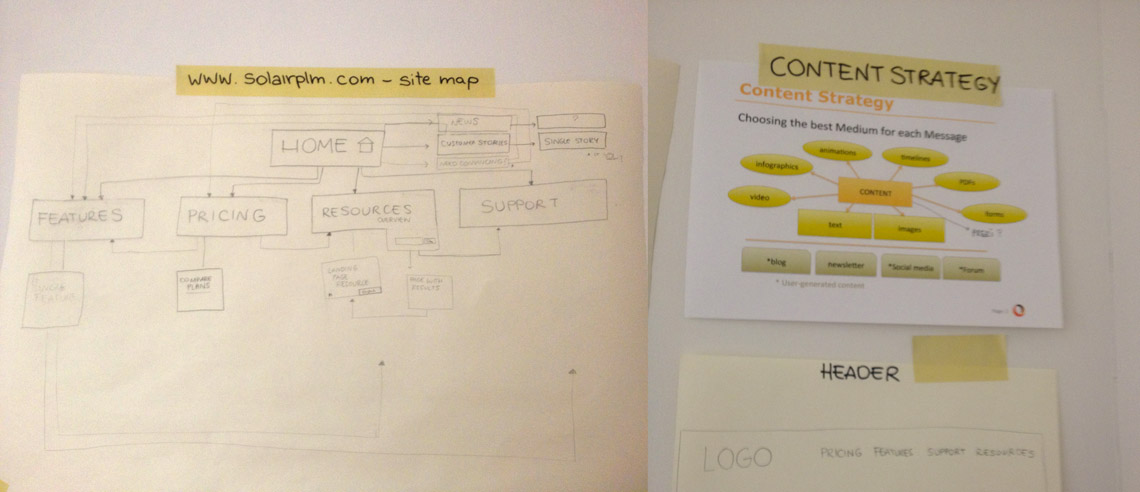 www.solairplm.com - site map
HOME
NEWS
CUSTOMER STORIES
?
SINGLE STORY
FEATURES
PRICING
RESOURCES
OVERVIEW
SUPPORT
SINGLE
FEATURE
COMPARE
PLANS
LANDING
PAGE
RESOURCE
PAGE WITH
RESULTS
CONTENT STRATEGY
Content Strategy
Choosing the best Medium for each Message
animations
timelines
infographics
PDFs
video
CONTENT
forms
text
images
*blog
newsletter
*Social media
*Forum
* User-generated content
HEADER
LOGO
PRICING FEATURES SUPPORT RESOURCES